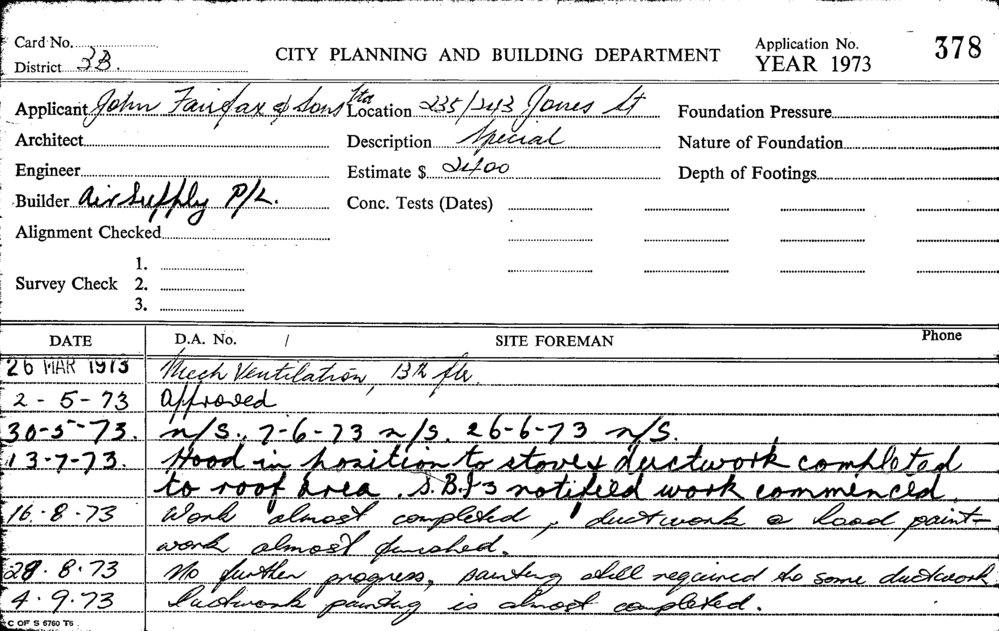 Card No.
District 3B.
CITY PLANNING AND BUILDING DEPARTMENT
Application No. 378
YEAR 1973
Applicant John Fairfax & Sons Ltd Location 235/243 Jones St Foundation Pressure
Architect Description Special Nature of Foundation
Engineer Estimate $ 2400 Depth of Footings
Builder Air Supply P/L. Conc. Tests (Dates)
Alignment Checked
1.
Survey Check 2.
3.
DATE D.A. No. / SITE FOREMAN Phone
26 MAR 1973 Mech Ventilation, 13th flr.
2 - 5 - 73 Approved
30-5-73. n/S., 7-6-73 n/S. 26-6-73 n/S.
13-7-73. Hood in position to stove & ductwork completed
to roof area. S.B.I's notified work commenced.
16-8-73 Work almost completed, ductwork & hood paint-
work almost finished.
28.8.73 No further progress, painting still required to some ductwork
4.9.73 Ductwork painting is almost completed.
C OF S 6760 T6